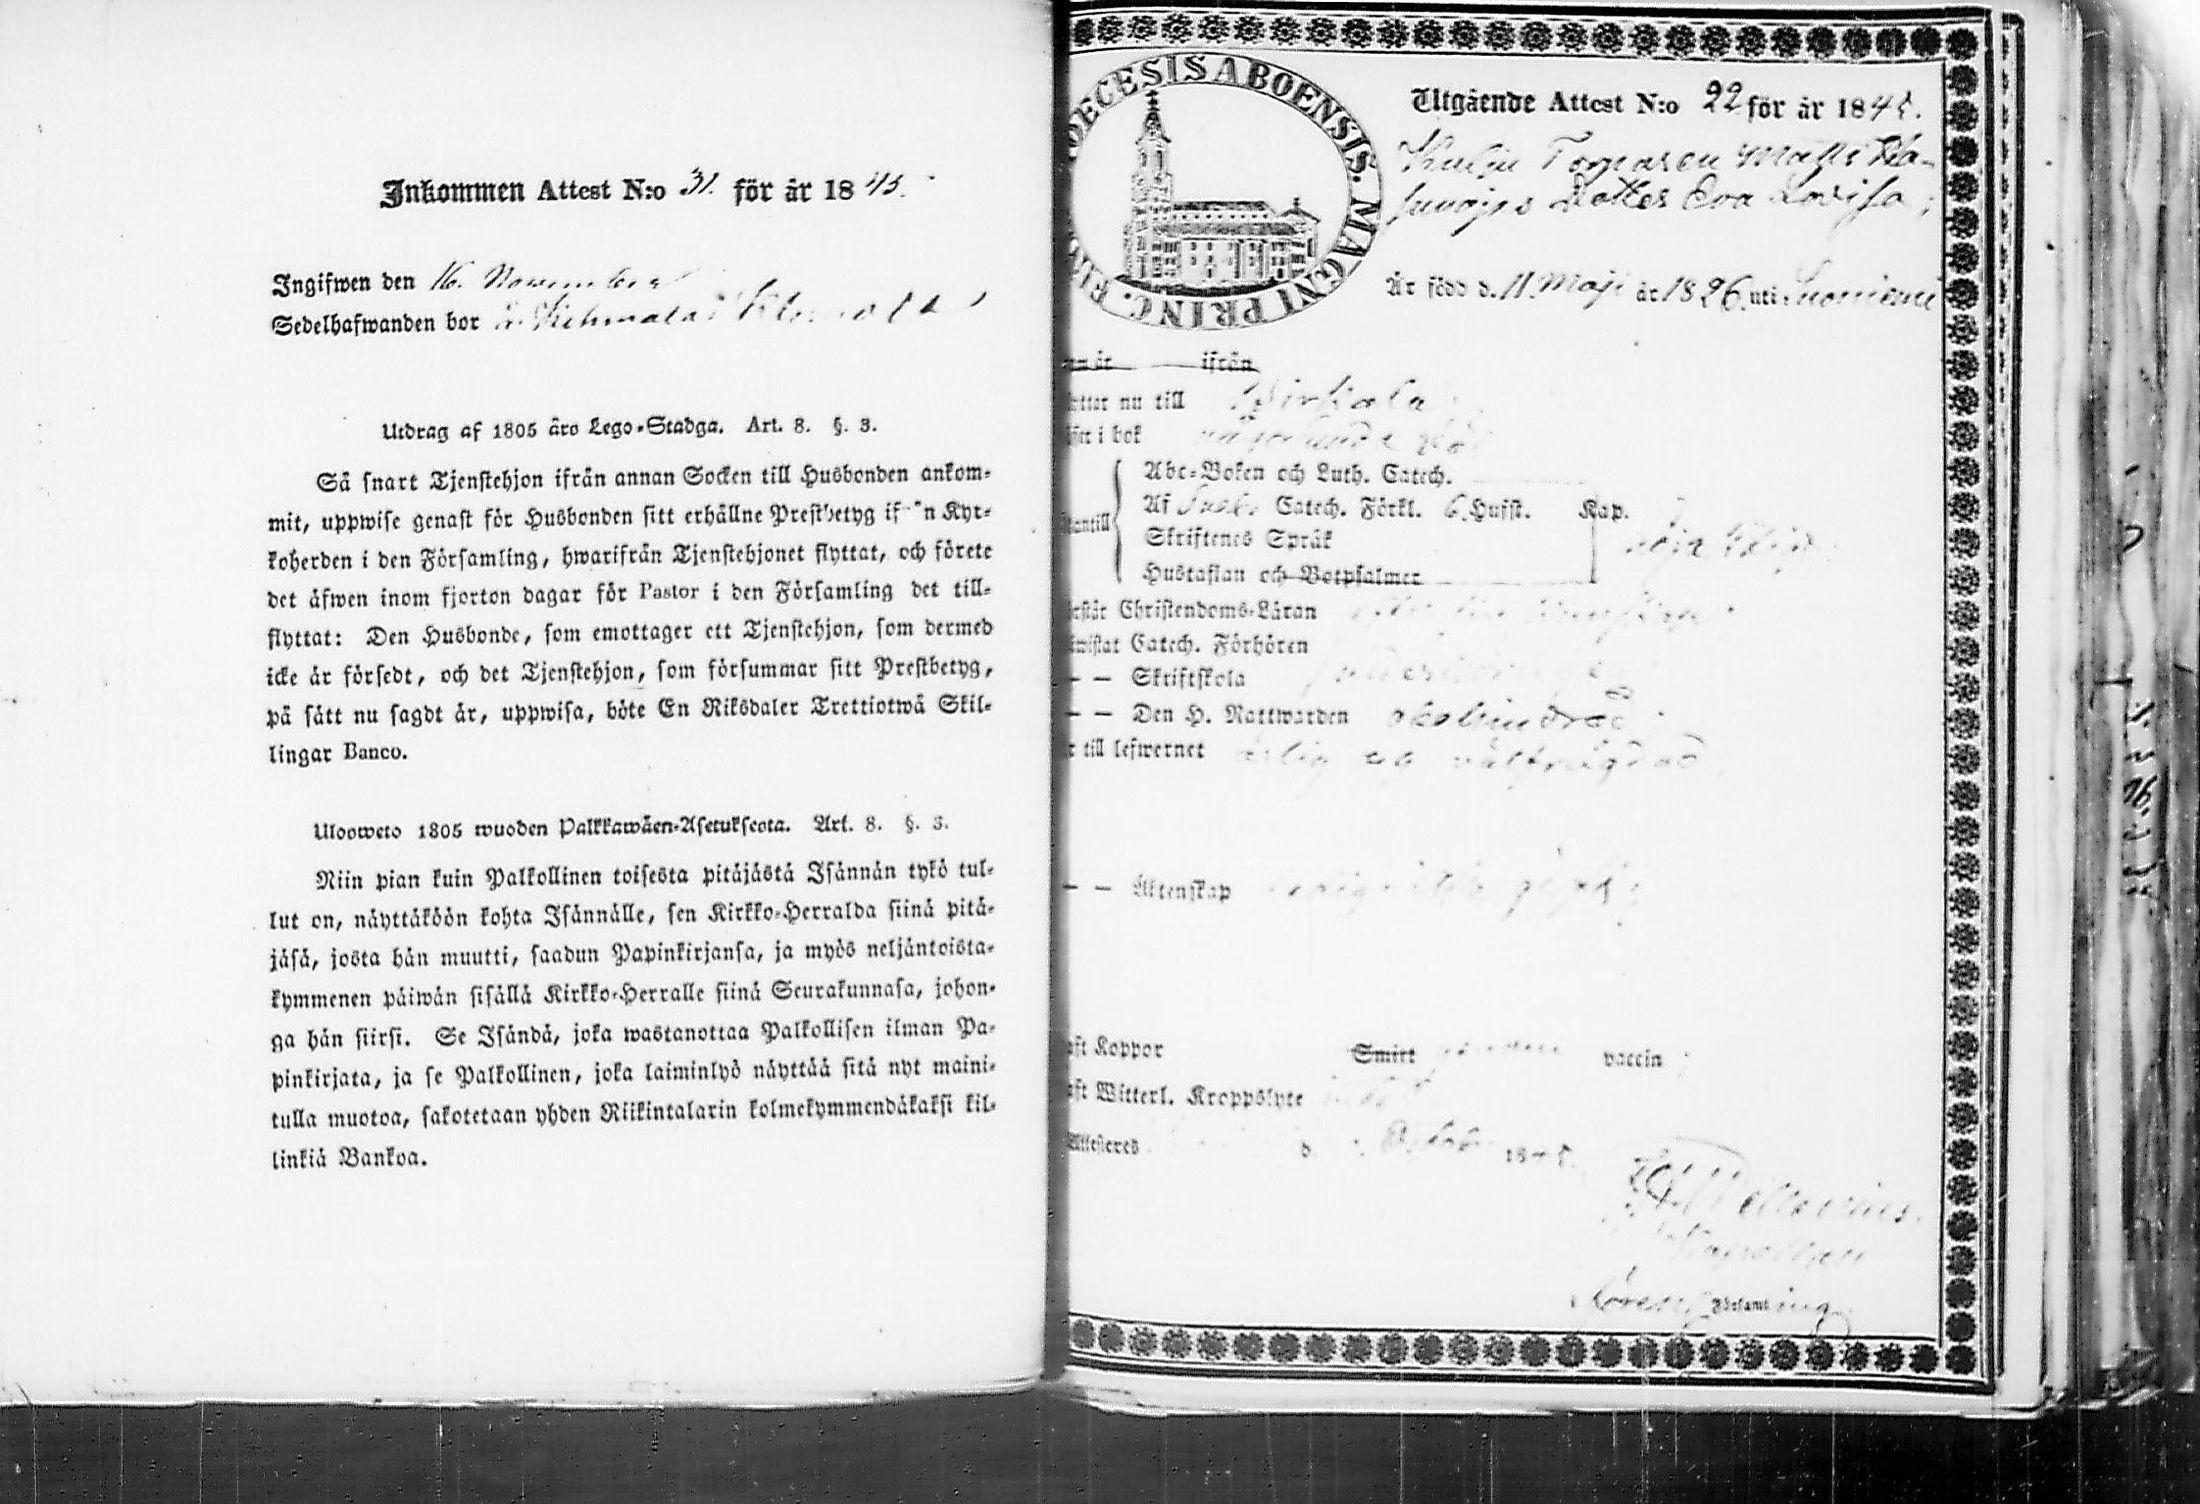 Inkommen Attest N:o 31. för år 1845.
Ingifwen den 16. November
Sedelhafwanden bor
Utdrag af 1805 års Lego-Stadga. Art. 8. §. 3.
Så snart Tjenstehjon ifrån annan Socken till Husbonden ankom-
mit, uppwise genast för Husbonden sitt erhållne Prestbetyg if n Kyr-
koherden i den Församling, hwarifrån Tjenstehjonet flyttat, och förete
det äfwen inom fjorton dagar för Pastor i den Församling det till-
flyttat: Den Husbonde, som emottager ett Tjenstehjon, som dermed
icke är försedt, och det Tjenstehjon, som försummar sitt Prestbetyg,
på sätt nu sagdt är, uppwisa, böte En Riksdaler Trettiotwå Skil-
lingar Banco.
Ulosweto 1805 wuoden Palkkawäen-Asetuksesta. Art. 8. §. 3.
Niin pian kuin Palkollinen toisesta pitäjästä Isännän tykö tul-
lut on, näyttäköön kohta Isännälle, sen Kirkko-Herralda siinä pitä-
jäsä, josta hän muutti, saadun Papinkirjansa, ja myös neljäntoista-
kymmenen päiwän sisällä Kirkko-Herralle siinä Seurakunnasa, johon-
ga hän siirsi. Se Isändä, joka wastanottaa Palkollisen ilman Pa-
pinkirjata, ja se Palkollinen, joka laiminlyö näyttää sitä nyt maini-
tulla muotoa, sakotetaan yhden Riikintalarin kolmekymmendäkaksi kil-
linkiä Bankoa.
DECESIS ABOENSIS. MAGNI PRINC. FIN
Utgående Attest N:o 22 för år 1845.
Matts
Dotter Eva Lovisa;
Är född d. 11. Maji år 1826. uti Suoniemi
år ifrån
nu till Birkala
i bok
Abc-Boken och Luth. Catech.
Af Catech. Förkl. 6. Hufst. Kap.
Skriftenes Språk
Hustaflan och Botpsalmer
Christendoms-Läran
Catech. Förhören
— — Skriftskola
— — Den H. Nattwarden oklandrad
till lefwernet ärlig och välfrägdad
— — Äktenskap
Koppor Smitt vaccin
Witterl. Kroppslyte
Attesteres d. Octob. 1845.
Kapellan
Församling